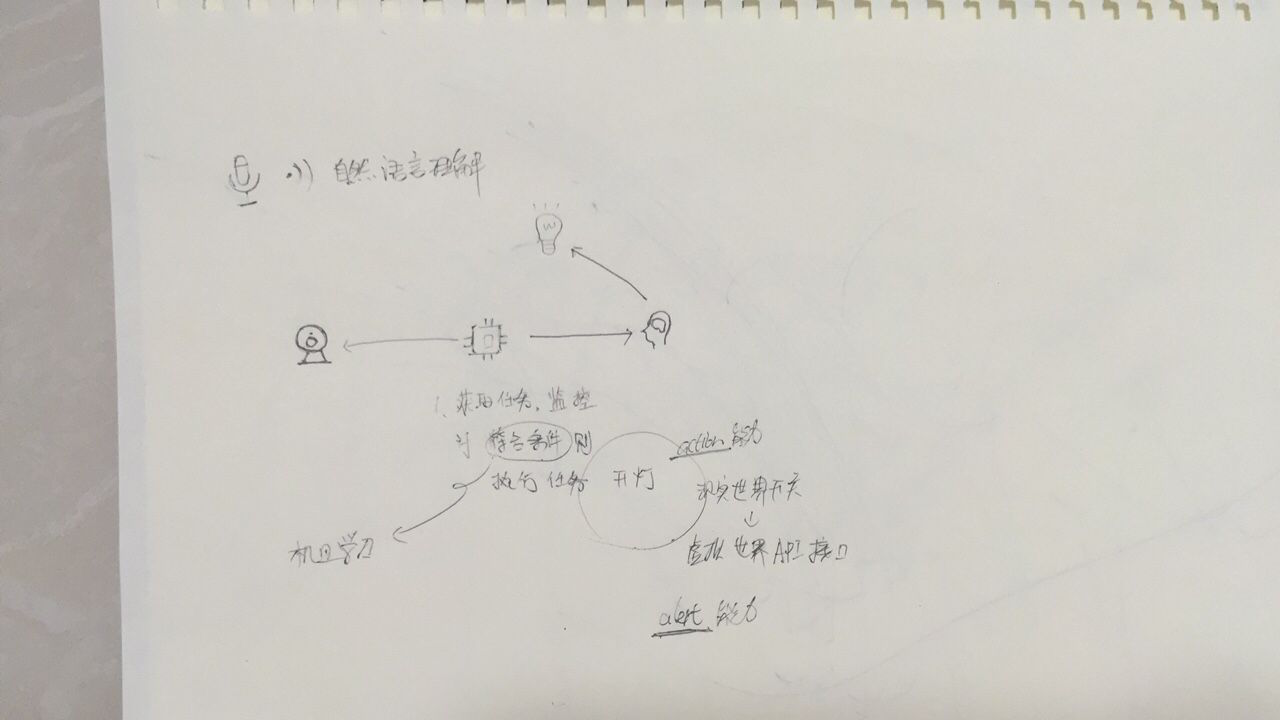 自然语言理解
1、获取任务，监控
对 符合条件 则
执行任务
开灯
action 能力
现实世界开关
↓
虚拟世界API接口
机器学习
alert 能力